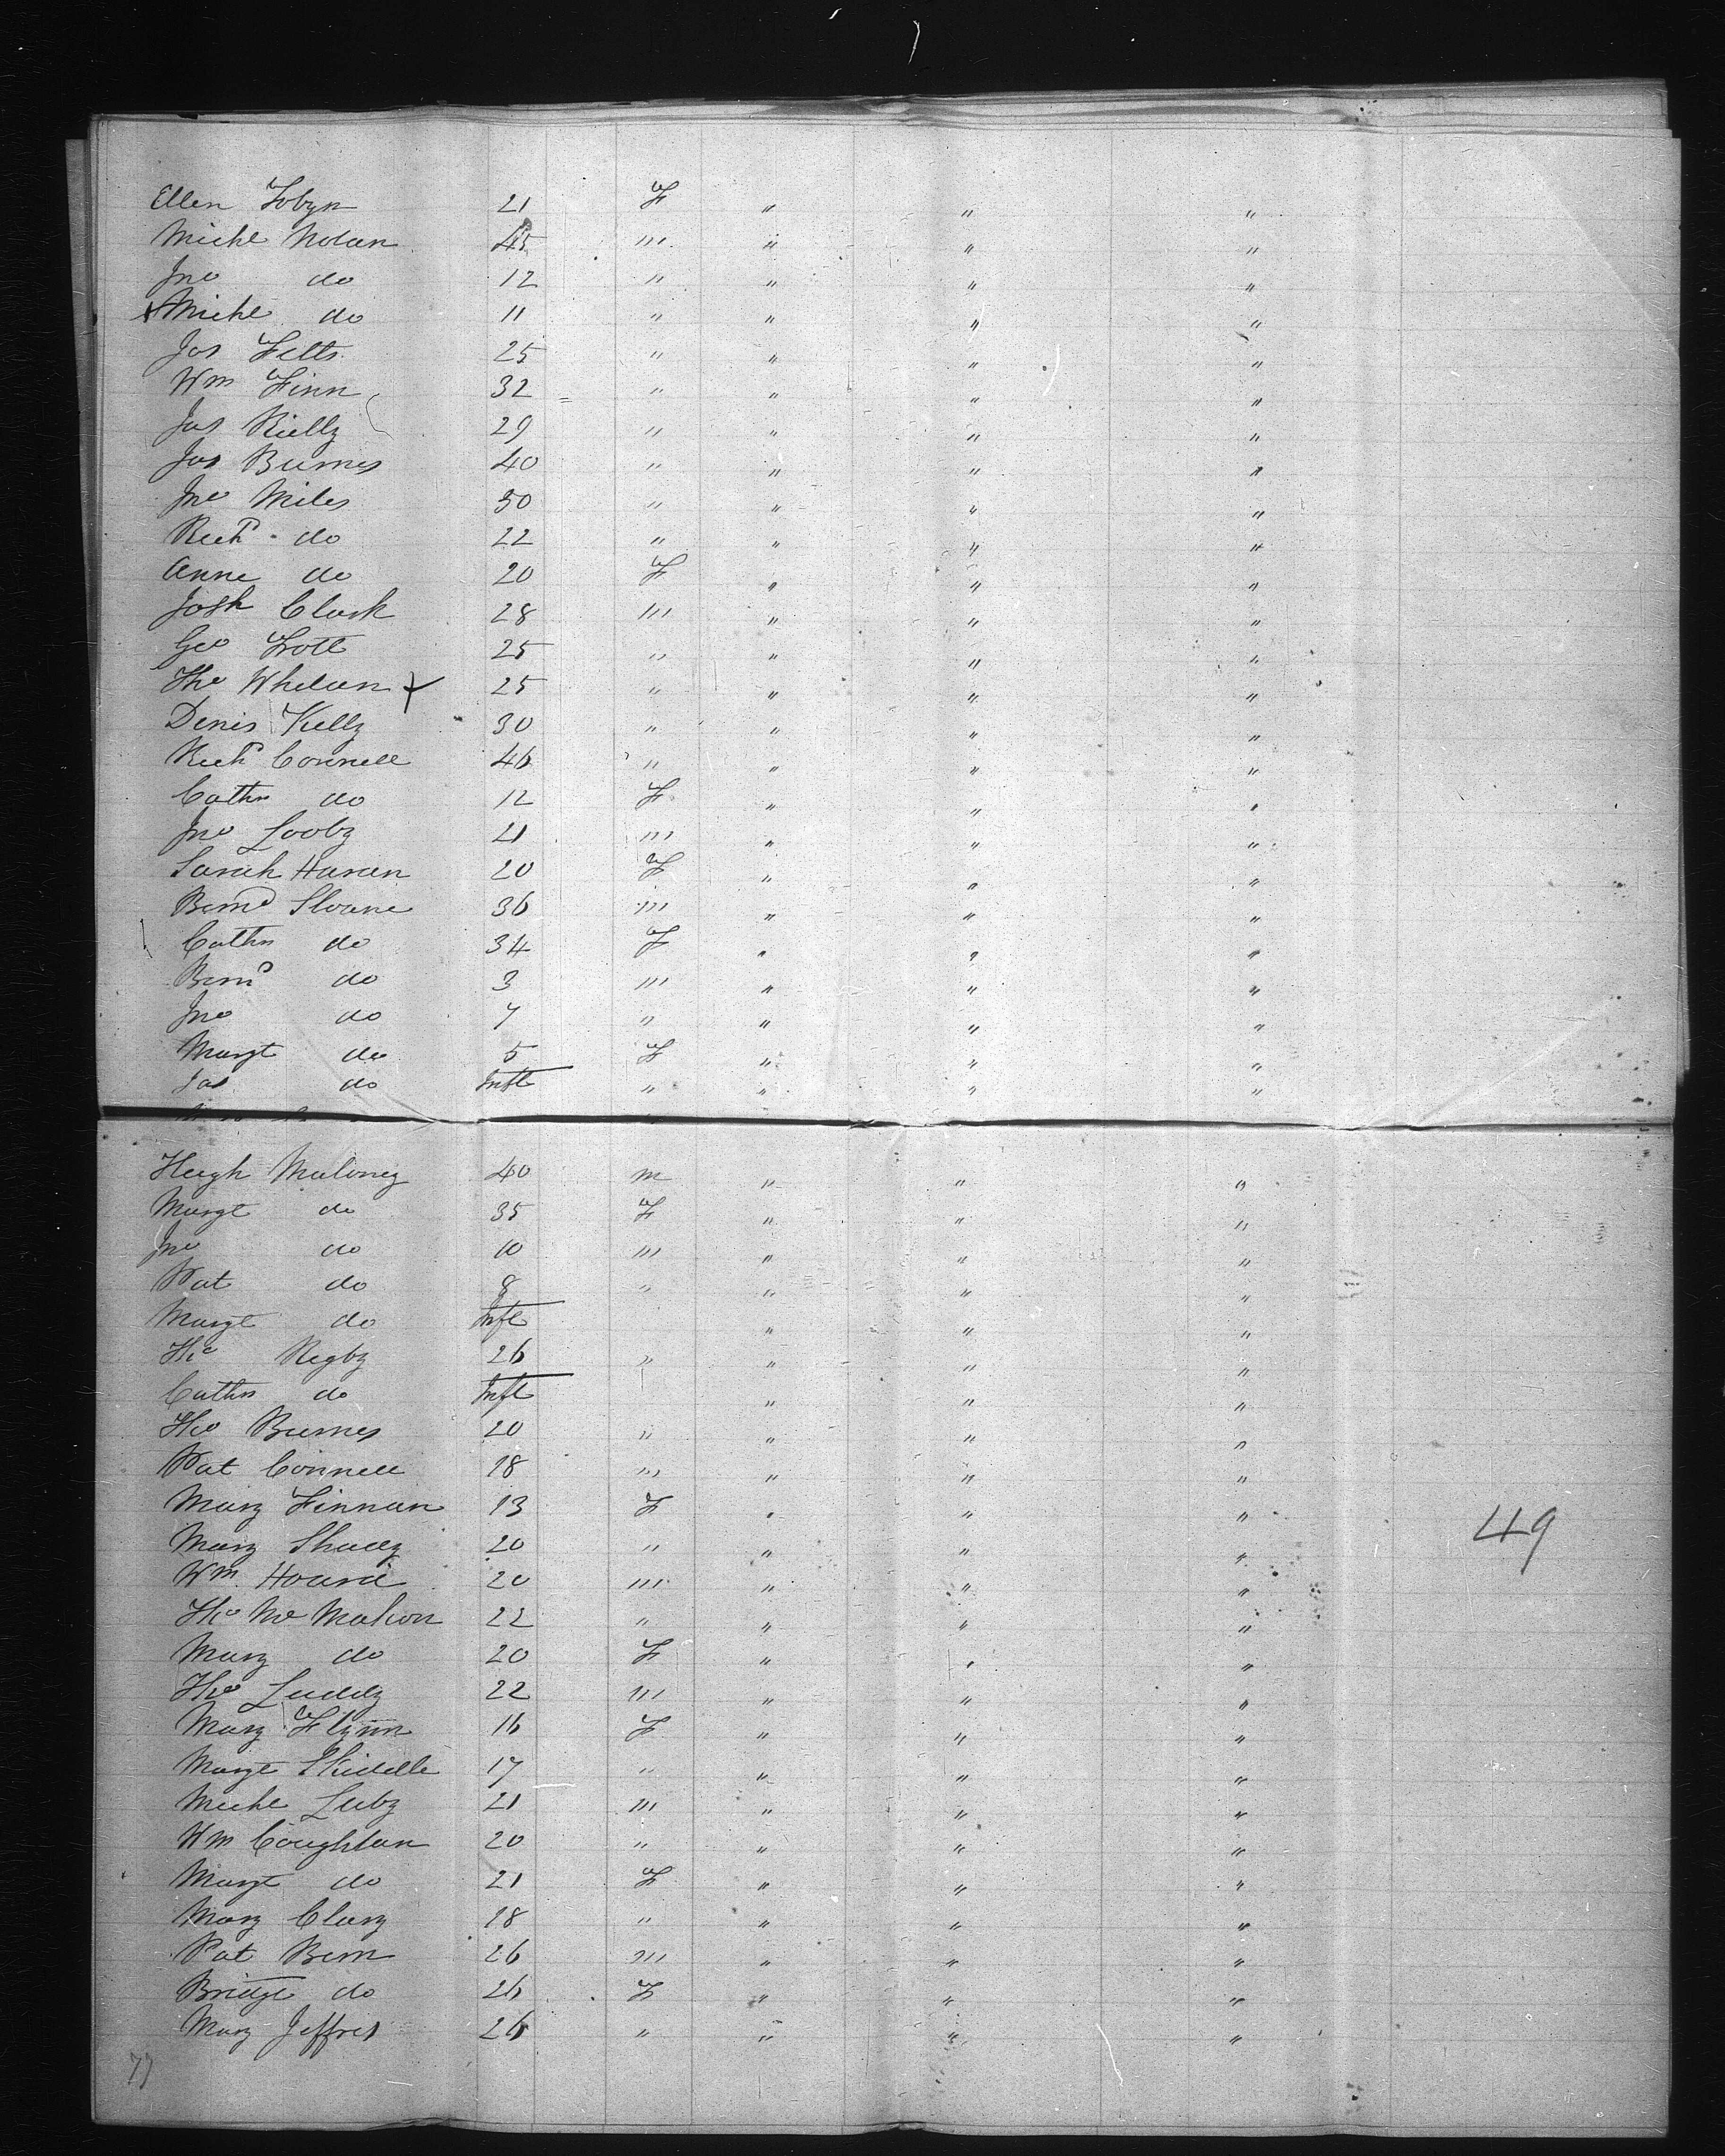 Ellen Tobyn 21 F " " "
Michl Nolan 45 m " " "
Jno do 12 " " " "
x Michl do 11 " " " "
Jas Felts 25 " " " "
Wm Finn 32 " " " "
Jas Rielly 29 " " " "
Jas Burnes 40 " " " "
Jno Miles 50 " " " "
Richd do 22 " " " "
Anne do 20 F " " "
Josh Clark 28 m " " "
Geo Trott 25 " " " "
Tho Whelan x 25 " " " "
Denis Kelly 30 " " " "
Richd Connell 46 " " " "
Cathn do 12 F " " "
Jno Looby 21 m " " "
Sarah Haran 20 F " " "
Bernd Sloane 36 m " " "
Cathn do 34 F " " "
Bernd do 3 m " " "
Jno do 7 " " " "
Margt do 5 F " " "
Jas do Inft " " " "
Hugh Maloney 40 m " " "
Margt do 35 F " " "
Jno do 10 m " " "
Pat do 8 " " " "
Margt do Inft " " "
Tho Rigby 26 " " " "
Cathn do Inft " " "
Tho Burnes 20 " " " "
Pat Connell 18 " " " "
Mary Finnan 13 F " " "
Mary 20 " " " "
Wm 20 m " " "
Tho McMahon 22 " " " "
Mary do 20 F " " "
Tho Luddy 22 m " " "
Mary Flynn 16 F " " "
Margt 17 " " " "
Michl Luby 21 m " " "
Wm Coughlan 20 " " " "
Margt do 21 F " " "
Mary Clary 18 " " " "
Pat Bern 26 m " " "
Bridgt do 26 F " " "
Mary Jeffres 26 " " " "
49
77